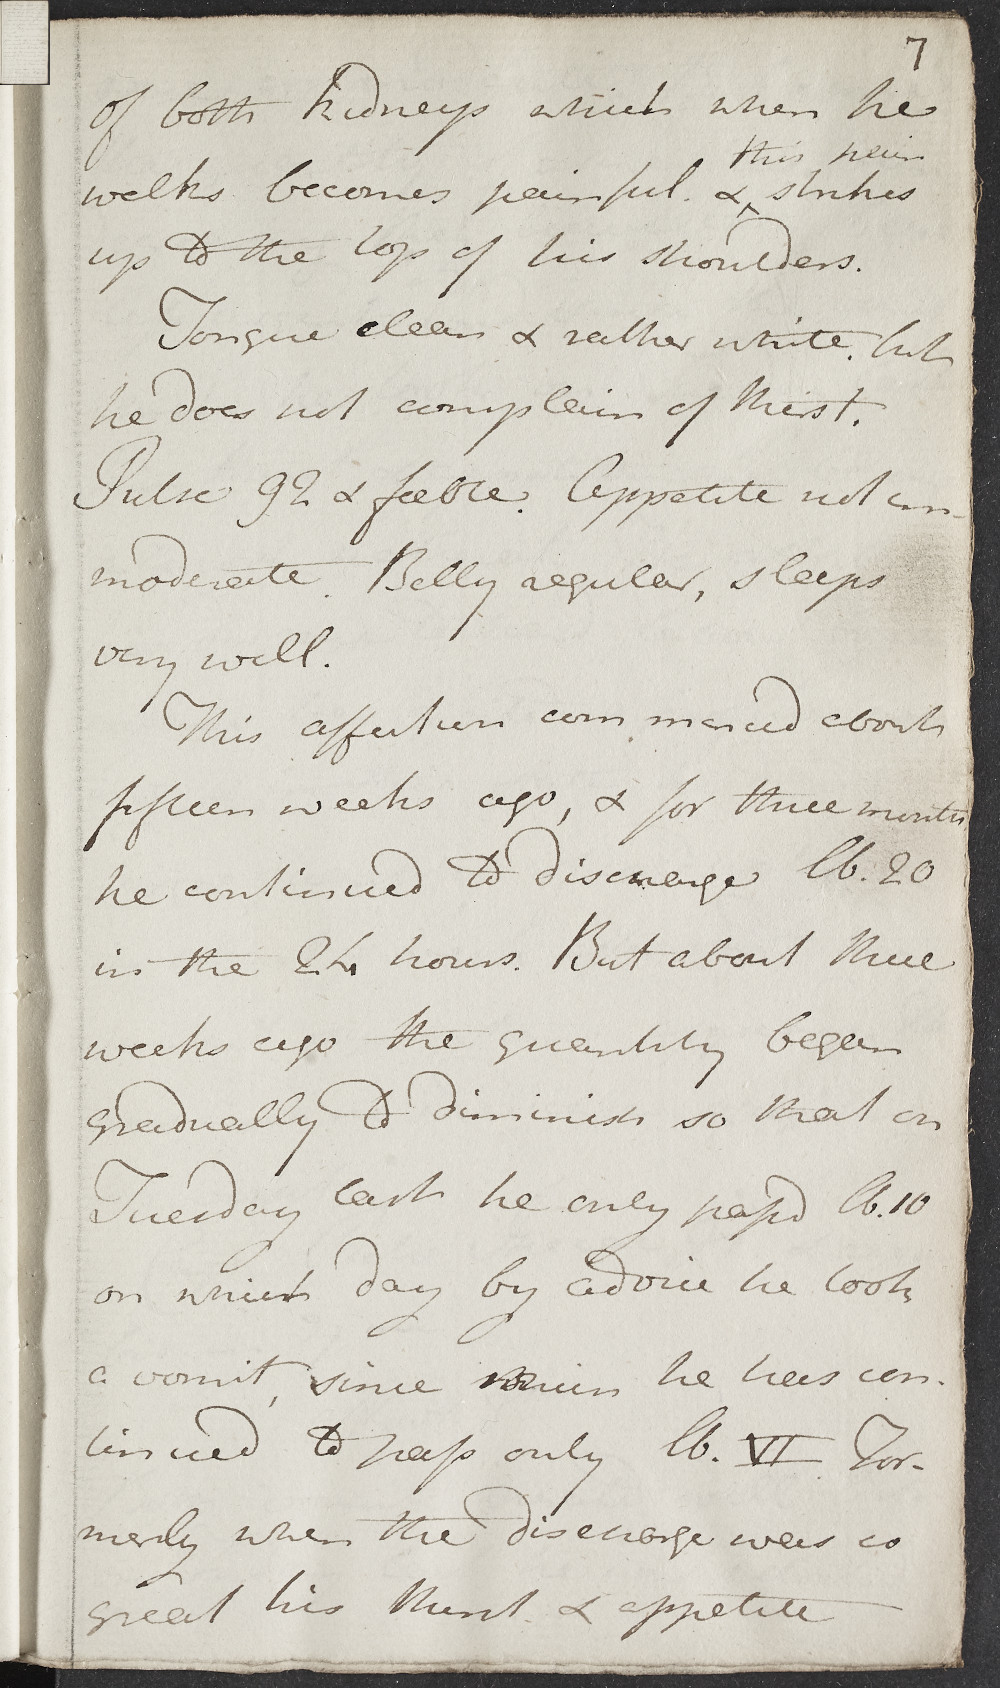 7
of both kidneys which when he
walks becomes painful. & ^this pain strikes
up to the top of his shoulders.
Tongue clean & rather white. but
he does not complain of thirst.
Pulse 92 & feeble. Appetite not im-
moderate. Belly regular, sleeps
very well.
This affection commenced about
fifteen weeks ago, & for three months
he continued to discharge lb. 20
in the 24 hours. But about three
weeks ago the quantity began
gradually to diminish so that on
Tuesday last he only pass'd lb. 10
on which day by advice he took
a vomit, since which he has con-
tinued to pass only lb. VI. For-
merly when the discharge was so
great his thirst & appetite